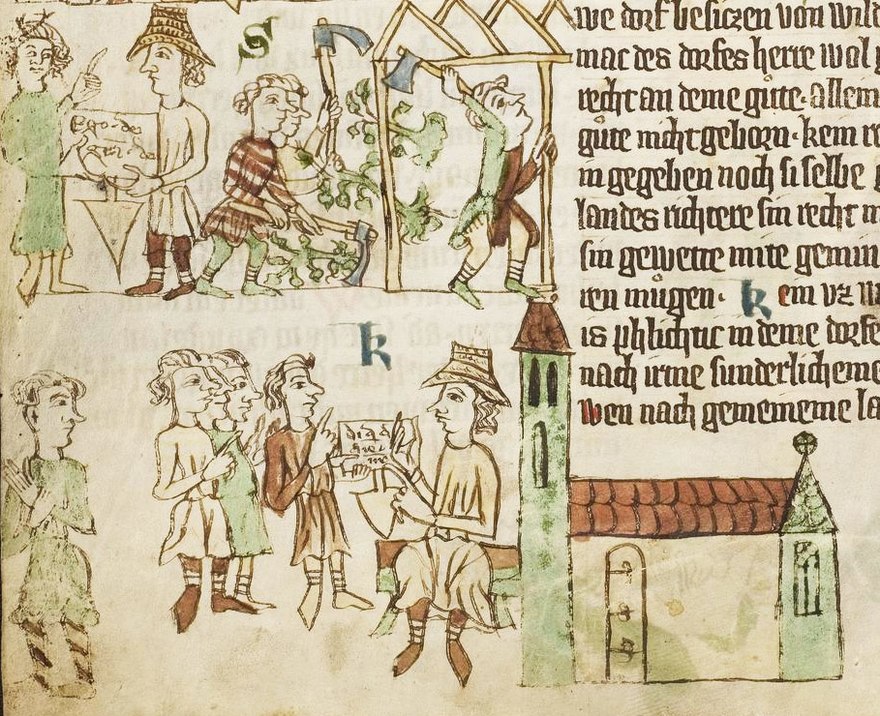 S
Ego de
we dorf besiczen von wild
mac des dorfes herre wol
recht an deme gůte. allem
gůte nicht geborn. kem re
in gegeben noch si selbe
landes richtere sin recht
sin gewette mite gemin
ren můgen. k em vz
is phlichtic in deme dorfe
nach irme sunderlicheme
wen nach gemeineme la
k